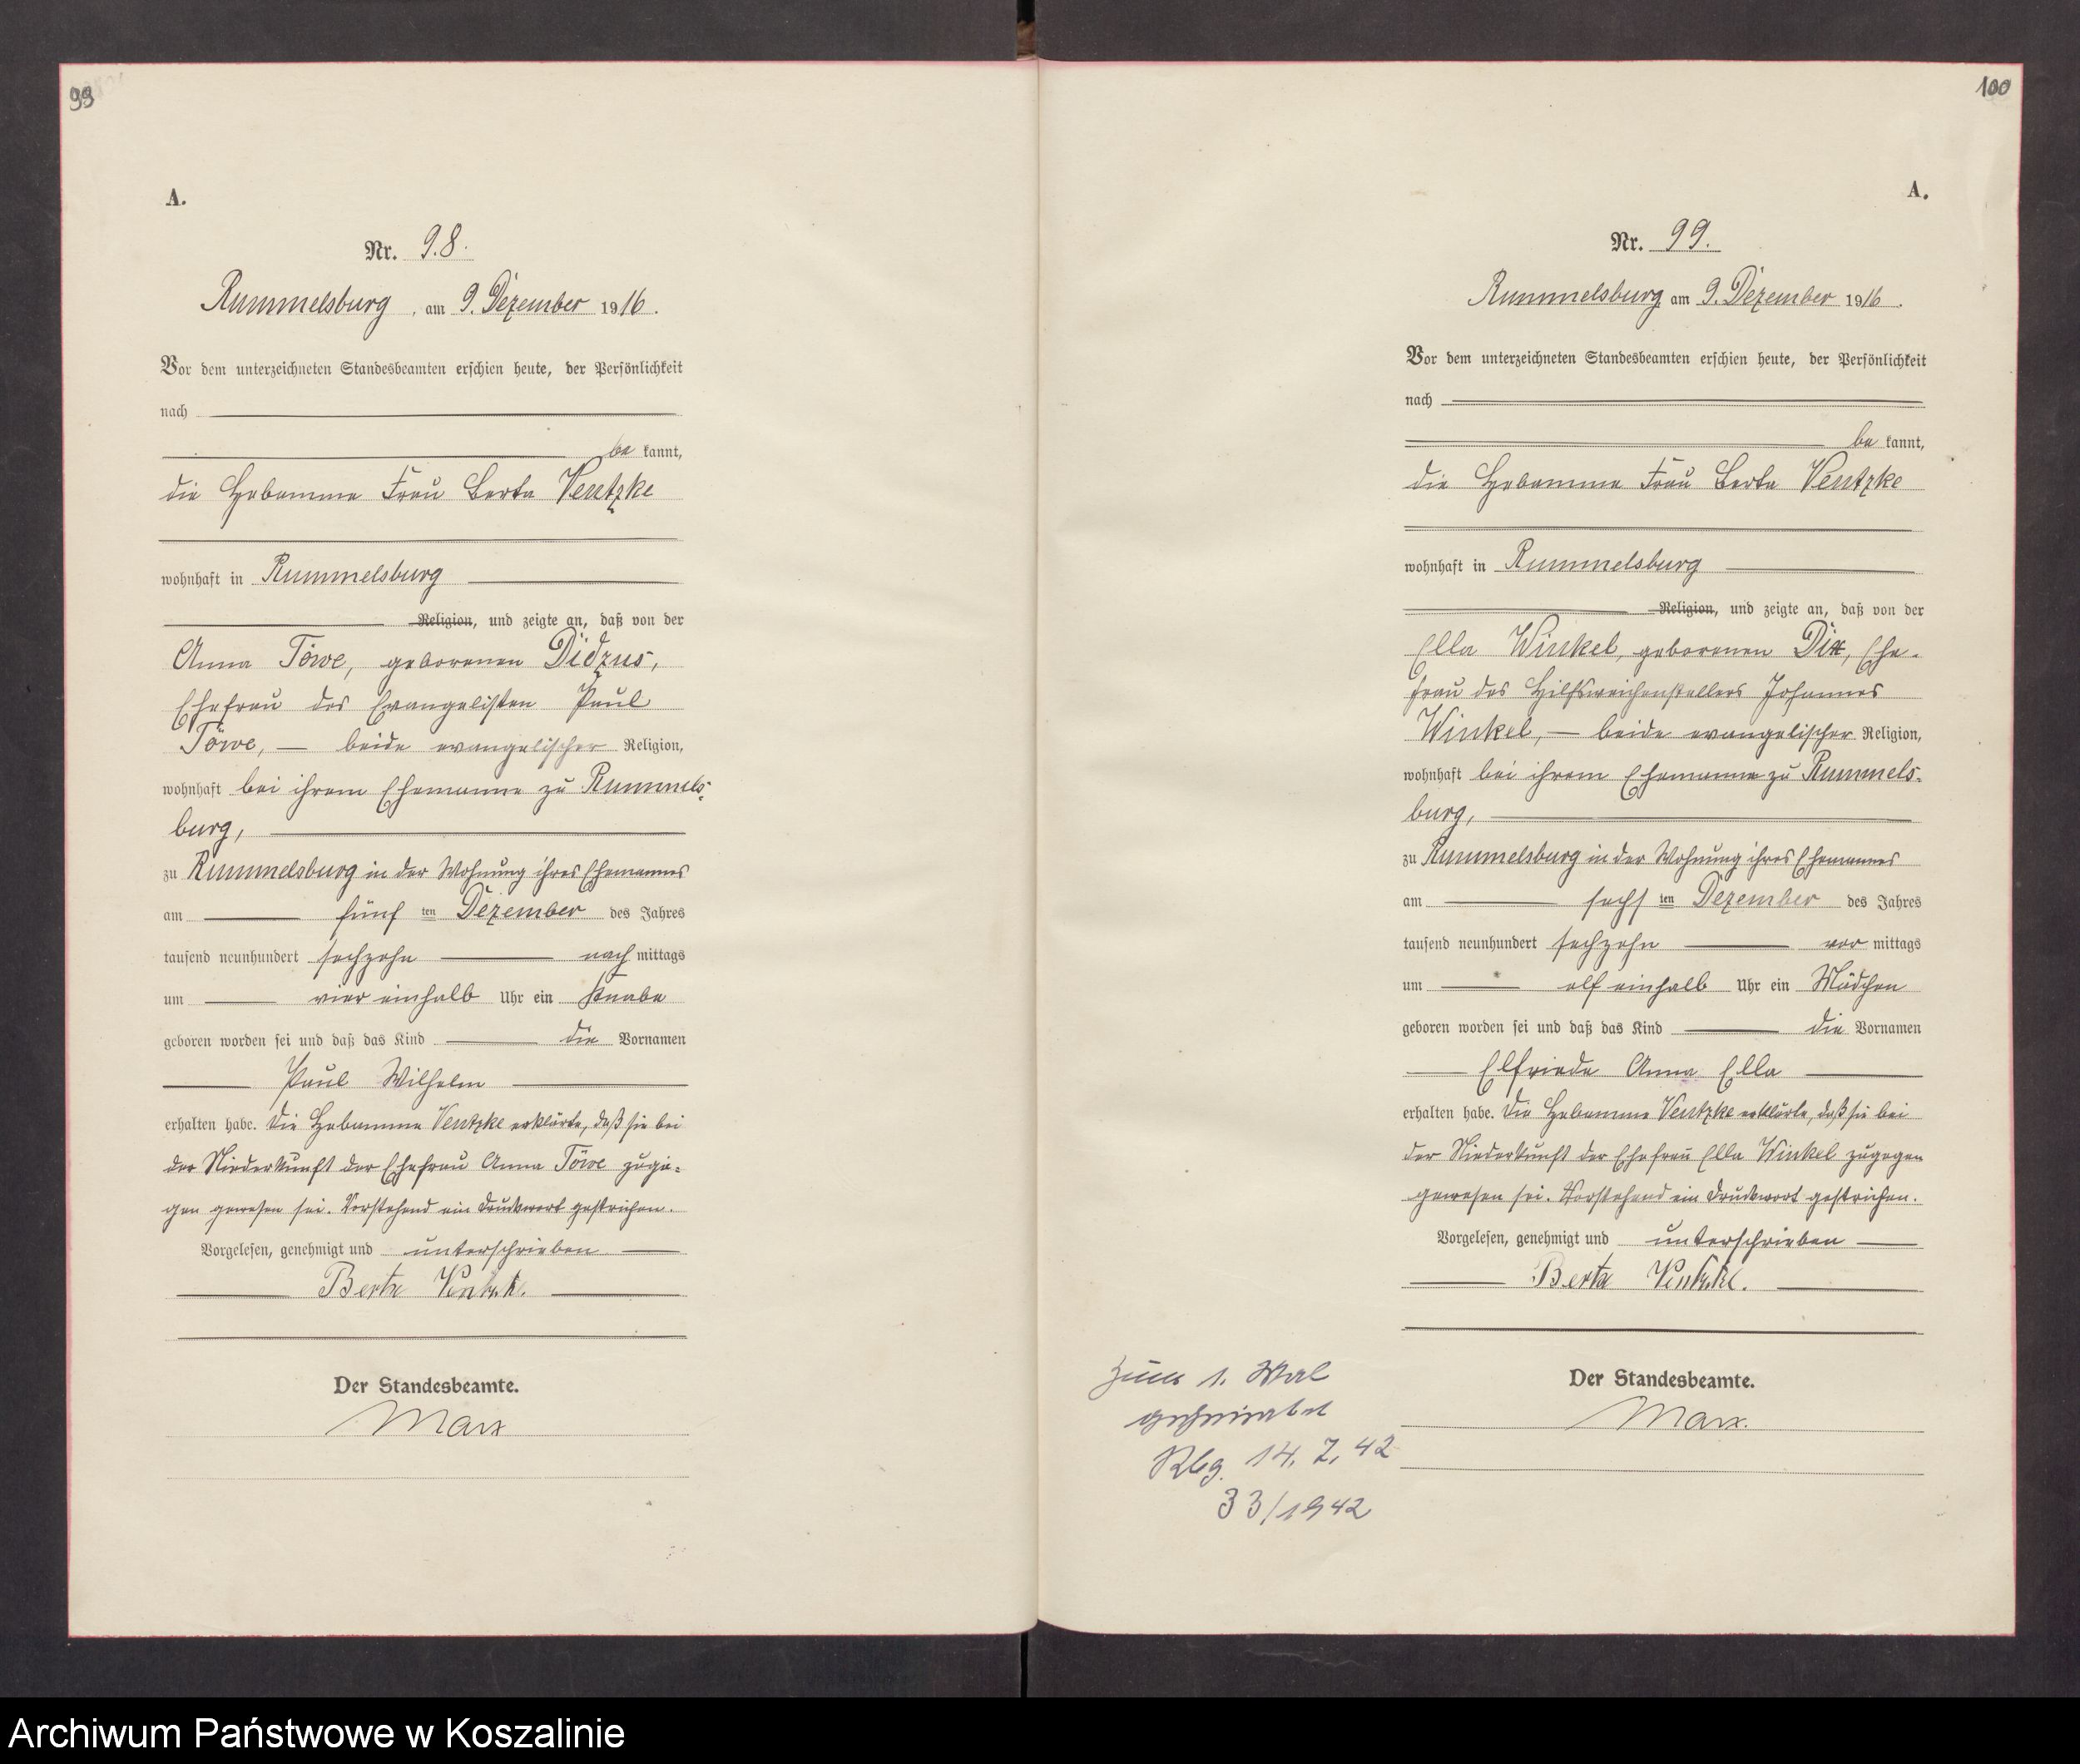 99
A.
Nr. 98.
Rummelsburg, am 9. Dezember 1916.
Vor dem unterzeichneten Standesbeamten erschien heute, der Persönlichkeit
nach
be kannt,
die Hebamme Frau Berta Ventzke
wohnhaft in Rummelsburg
Religion, und zeigte an, daß von der
Anna Töwe, geborenen Didzus,
Ehefrau des Evangelisten Paul
Töwe, — beide evangelischer Religion,
wohnhaft bei ihrem Ehemanne zu Rummels-
burg,
zu Rummelsburg in der Wohnung ihres Ehemannes
am fünf ten Dezember des Jahres
tausend neunhundert sechzehn nach mittags
um vier einhalb Uhr ein Knabe
geboren worden sei und daß das Kind die Vornamen
Paul Wilhelm
erhalten habe. Die Hebamme Ventzke erklärte, daß sie bei
der Niederkunft der Ehefrau Anna Töwe zuge-
gen gewesen sei. Vorstehend ein Druckwort gestrichen.
Vorgelesen, genehmigt und unterschrieben
Berta Ventzke.
Der Standesbeamte.
Marx
100
A.
Nr. 99.
Rummelsburg am 9. Dezember 1916.
Vor dem unterzeichneten Standesbeamten erschien heute, der Persönlichkeit
nach
be kannt,
die Hebamme Frau Berta Ventzke
wohnhaft in Rummelsburg
Religion, und zeigte an, daß von der
Ella Winkel, geborenen Dix, Ehe-
frau des Hilfsweichenstellers Johannes
Winkel, — beide evangelischer Religion,
wohnhaft bei ihrem Ehemanne zu Rummels-
burg,
zu Rummelsburg in der Wohnung ihres Ehemannes
am sechs ten Dezember des Jahres
tausend neunhundert sechzehn vor mittags
um elf einhalb Uhr ein Mädchen
geboren worden sei und daß das Kind die Vornamen
Elfriede Anna Ella
erhalten habe. Die Hebamme Ventzke erklärte, daß sie bei
der Niederkunft der Ehefrau Ella Winkel zugegen
gewesen sei. Vorstehend ein Druckwort gestrichen.
Vorgelesen, genehmigt und unterschrieben
Berta Ventzke.
Der Standesbeamte.
Marx.
Zum 1. Mal
geheiratet
Rbg. 14. 7. 42
33/1942
Archiwum Państwowe w Koszalinie